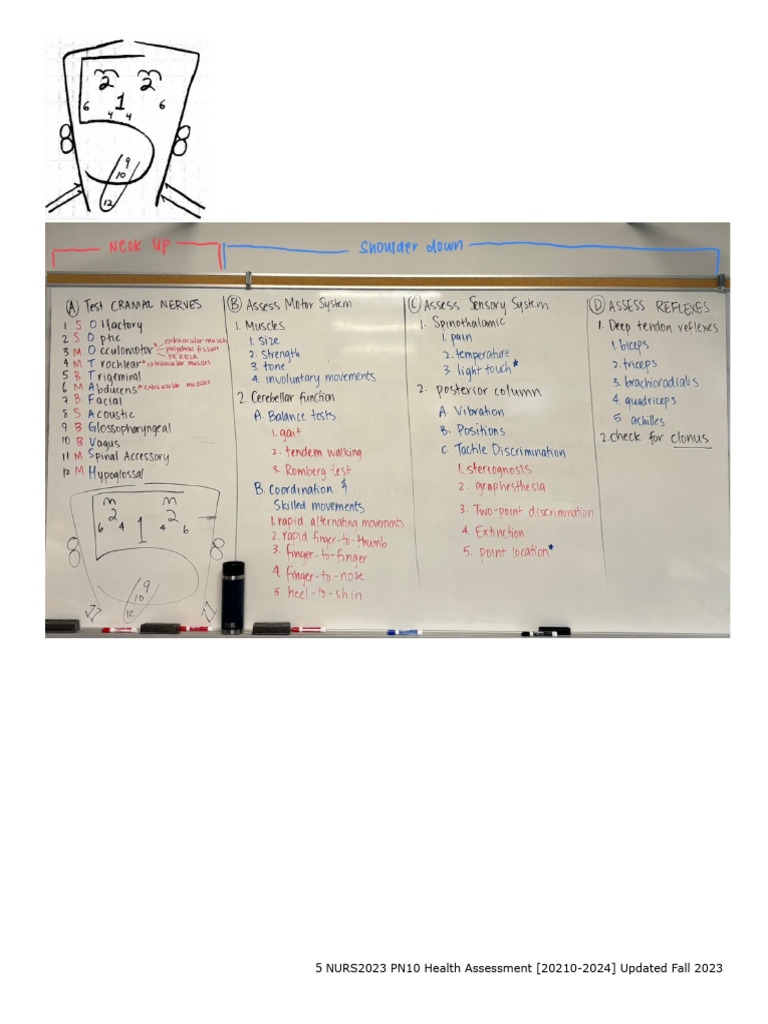 2 2
6 1 6
4 4
8 8
9
10
12
Neck up
Shoulder down
A Test CRANIAL NERVES
1 S Olfactory
2 S Optic
3 M Occulomotor* extraocular muscles
palpebral fissure
PERRLA
4 M Trochlear* extraocular muscles
5 B Trigeminal
6 M Abducens* extraocular muscles
7 B Facial
8 S Acoustic
9 B Glossopharyngeal
10 B Vagus
11 M Spinal Accessory
12 M Hypoglossal
m m
2 2
6 4 1 4 6
8 8
9
10
12
B Assess Motor System
1. Muscles
1. Size
2. strength
3. tone
4. involuntary movements
2. Cerebellar function
A. Balance tests
1. gait
2. tendem walking
3. Romberg test
B. Coordination &
Skilled movements
1. rapid alternating movements
2. rapid finger-to-thumb
3. finger-to-finger
4. finger-to-nose
5 heel-to-shin
C Assess Sensory System
1. Spinothalamic
1. pain
2. temperature
3. light touch*
2. posterior column
A. Vibration
B. Positions
C. Tactile Discrimination
1. stereognosis
2. graphesthesia
3. Two-point discrimination
4. Extinction
5. point location*
D ASSESS REFLEXES
1. Deep tendon reflexes
1. biceps
2. triceps
3. brachioradialis
4. quadriceps
5. achilles
2. check for clonus
5 NURS2023 PN10 Health Assessment [20210-2024] Updated Fall 2023